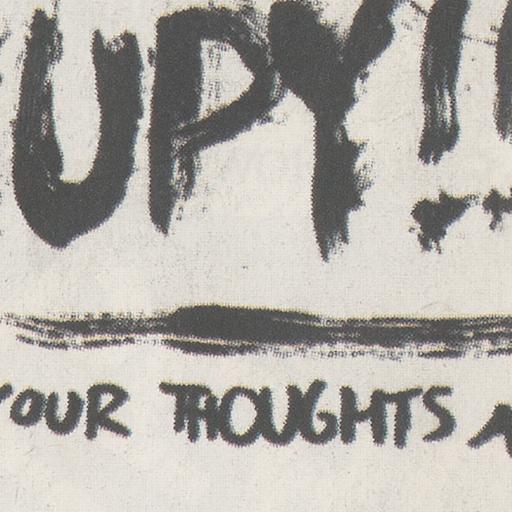 UPY!!
YOUR THOUGHTS